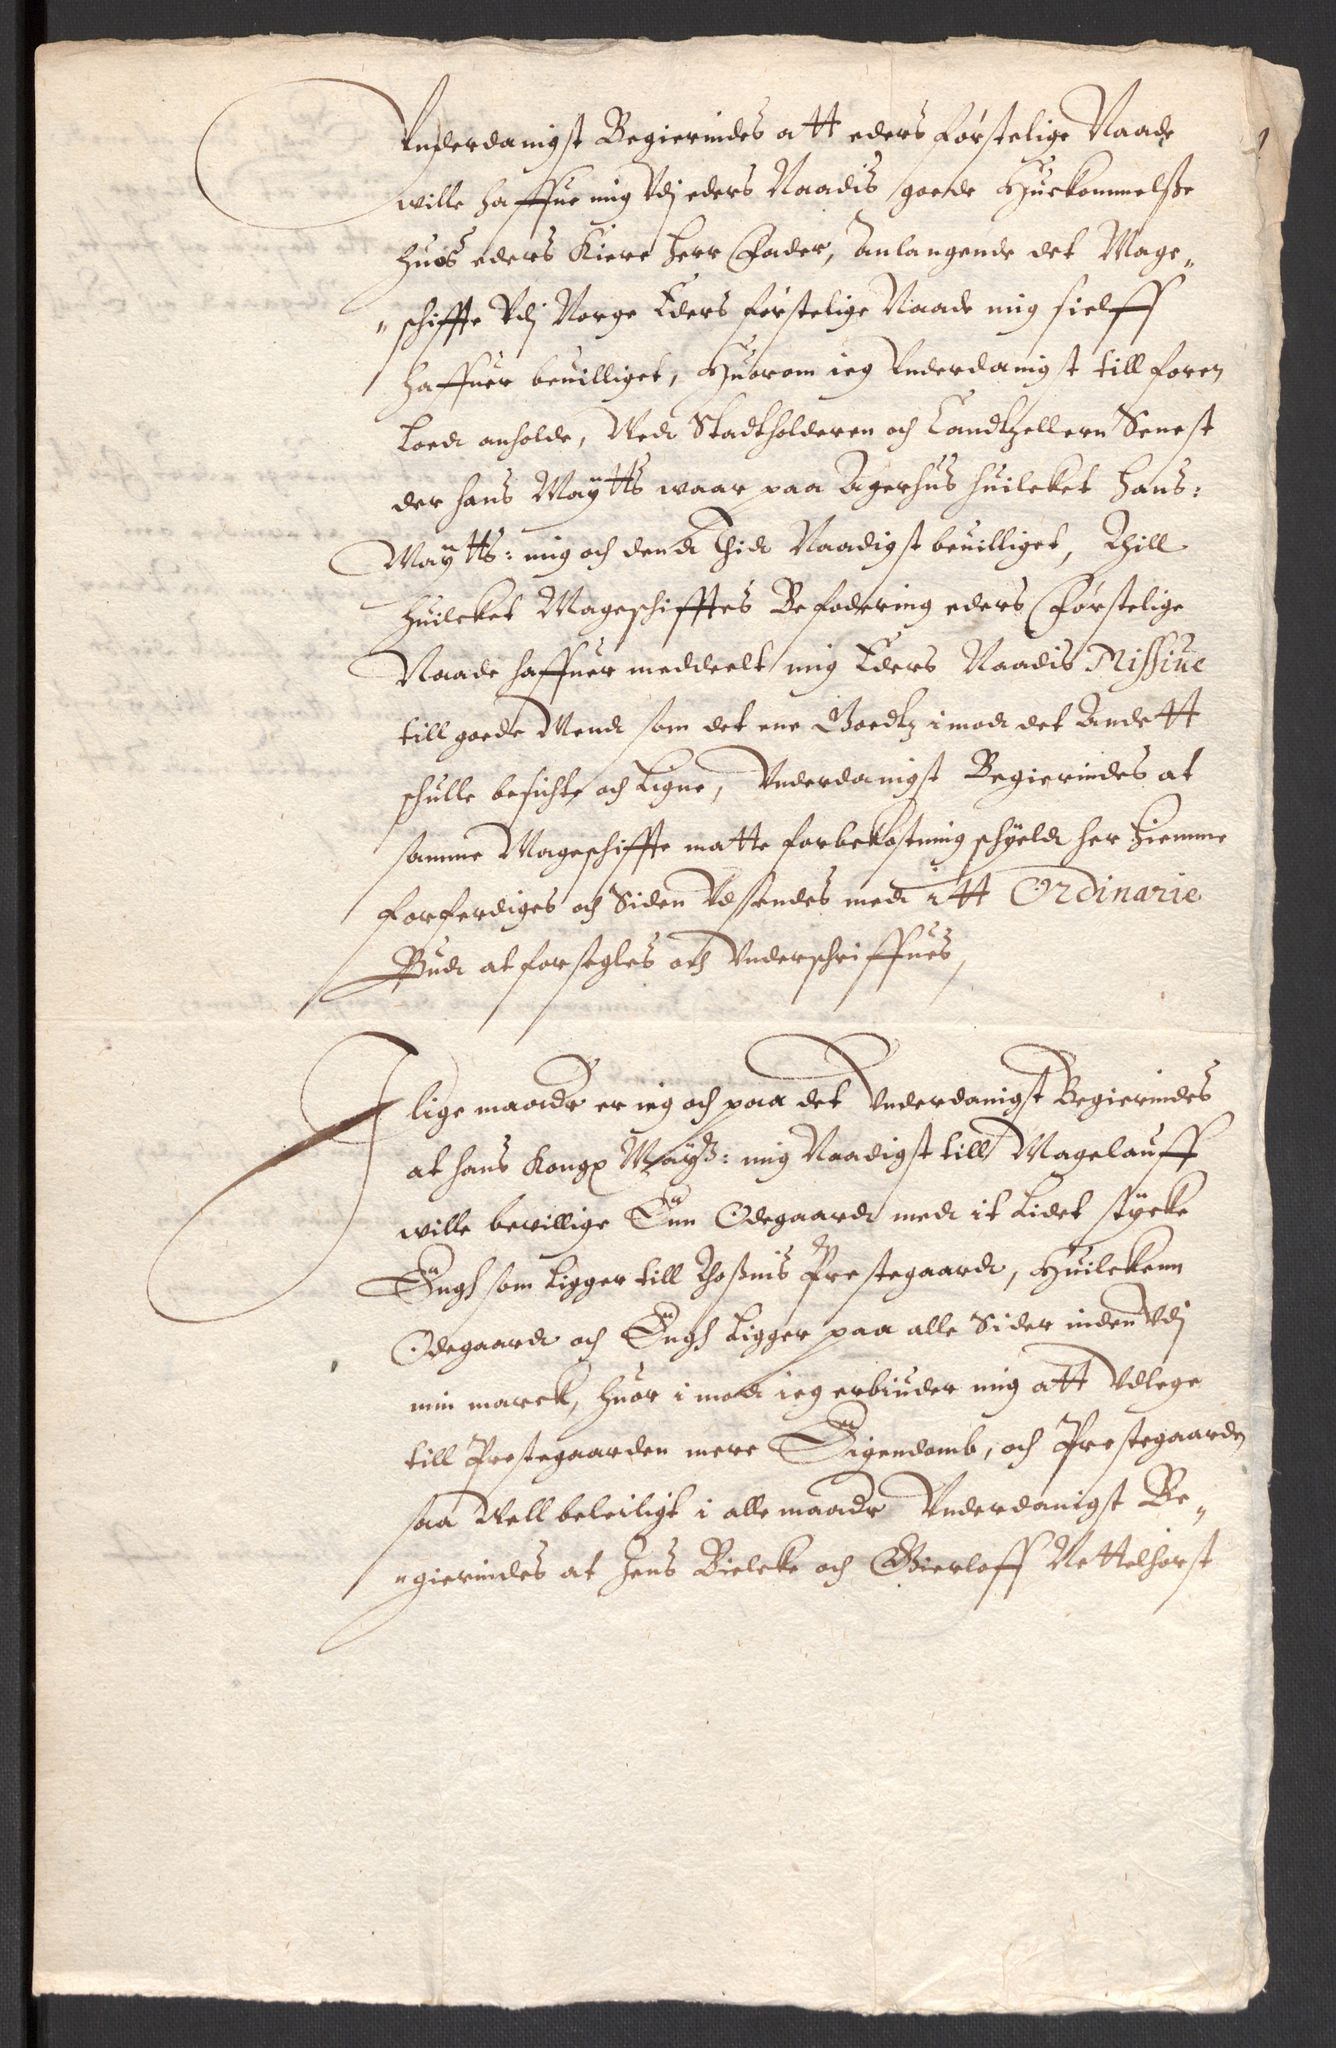 Vnderdanigst Begierindes att eders førstelige Naade
wille haffue mig Vdj eders Naadis goede Huekommelsße
huos eders Kiere Herr Fader, Anlangende det Mage„
„schiffte Vdj Norge Eders førstelige Naade mig sielff
haffuer beuilliget, Huorom ieg Vnderdanigst till foren
Loed anholde, Ved Stadtholderen och Candtzelleren Senest
der hans Maÿtts waar paa Agerhus huileket Hans:
Maÿtts: mig och dend Thid Naadigst beuilliget, Thill
Huileket Mageschifftes Befodering eders Førstelige
Naade haffuer meddeelt mig Eders Naadis Missiue
till goede Mend som det ene Goedtz imod det Andett
schulle besichte och Ligne, Vnderdanigst Begierindes at
samme Mageschiffte matte for bekostning schÿeld her hiemme
forferdiges och Siden Vdsendes med itt Ordinarie
Bud at forsegles och Vnderschriffues,
I lige maade er ieg och paa det Vnderdanigst Begierindes
at hans Kong: Maÿtz: mig Naadigst till Magelauff
wille bewillige Enn Ødegaard med it Lidet stÿcke
Engh som Ligger till Thoßnis Prestegaard, Huilekenn
Ødegaard och Engh Ligger paa alle Sider inden Vdj
min marck, huor imod ieg erbiuder mig att Vdlege
till Prestegaarden mere Eigendomb, och Prestegaarden
saa Vell beleiligt i alle maade Vnderdanigst Be„
„gierindes at Jens Bielcke och Gierloff Nettelhorst